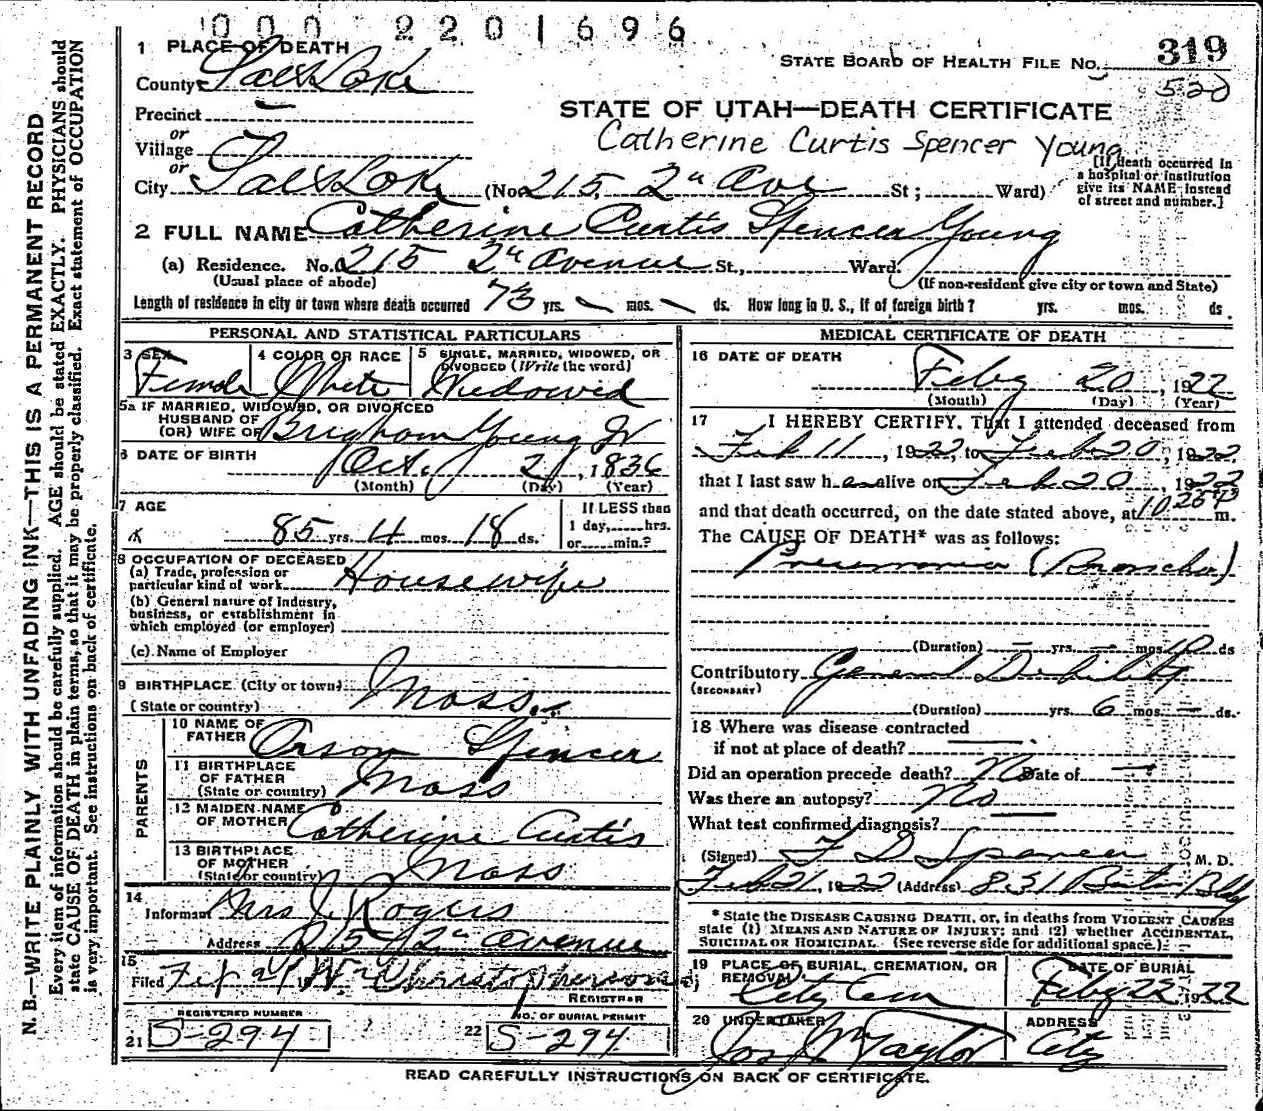 000 2201696
1 PLACE OF DEATH
STATE BOARD OF HEALTH FILE NO. 319
County Salt Lake
520
Precinct
STATE OF UTAH—DEATH CERTIFICATE
or
Village
Catherine Curtis Spencer Young
or
City Salt Lake (No. 215, 2nd Ave St; Ward)
[If death occurred in
a hospital or institution
give its NAME instead
of street and number.]
2 FULL NAME Catherine Curtis Spencer Young
(a) Residence. No. 215 2nd Avenue St., Ward.
(Usual place of abode) (If non-resident give city or town and State)
Length of residence in city or town where death occurred 73 yrs. — mos. — ds. How long in U. S., if of foreign birth? yrs. mos. ds.
PERSONAL AND STATISTICAL PARTICULARS
3 SEX Female
4 COLOR OR RACE White
5 SINGLE, MARRIED, WIDOWED, OR
DIVORCED (Write the word)
Widowed
5a IF MARRIED, WIDOWED, OR DIVORCED
HUSBAND OF
(OR) WIFE OF Brigham Young Jr
6 DATE OF BIRTH Oct. 2, 1836
(Month) (Day) (Year)
7 AGE 85 yrs. 4 mos. 18 ds.
If LESS than
1 day, hrs.
or min.?
8 OCCUPATION OF DECEASED
(a) Trade, profession or
particular kind of work Housewife
(b) General nature of industry,
business, or establishment in
which employed (or employer)
(c) Name of Employer
9 BIRTHPLACE (City or town)
(State or country) Mass.
PARENTS
10 NAME OF
FATHER Orson Spencer
11 BIRTHPLACE
OF FATHER
(State or country) Mass
12 MAIDEN NAME
OF MOTHER Catherine Curtis
13 BIRTHPLACE
OF MOTHER
(State or country) Mass
14
Informant Mrs J. Rogers
Address 215 2nd Avenue
15
Filed Feb 21 Christopherson
REGISTRAR
REGISTERED NUMBER
21 S-294
NO. OF BURIAL PERMIT
22 S-294
MEDICAL CERTIFICATE OF DEATH
16 DATE OF DEATH
Feby 20, 1922
(Month) (Day) (Year)
17 I HEREBY CERTIFY, That I attended deceased from
Feb 11, 1922, to Feb 20, 1922
that I last saw her alive on Feb 20, 1922
and that death occurred, on the date stated above, at 10 25 P m.
The CAUSE OF DEATH* was as follows:
Pneumonia (Bronchial)
(Duration) — yrs. — mos. 10 ds
Contributory General Debility
(SECONDARY)
(Duration) yrs. 6 mos. — ds.
18 Where was disease contracted
if not at place of death?
Did an operation precede death? No Date of —
Was there an autopsy? No
What test confirmed diagnosis?
(Signed) F D Spencer M. D.
Feb 21, 1922 (Address) 831 Boston Bldg
* State the DISEASE CAUSING DEATH, or, in deaths from VIOLENT CAUSES
state (1) MEANS AND NATURE OF INJURY; and (2) whether ACCIDENTAL,
SUICIDAL OR HOMICIDAL. (See reverse side for additional space.)
19 PLACE OF BURIAL, CREMATION, OR
REMOVAL
City Cem
DATE OF BURIAL
Feby 22 1922
20 UNDERTAKER
Jos Wm Taylor
ADDRESS
City
READ CAREFULLY INSTRUCTIONS ON BACK OF CERTIFICATE.
N. B.—WRITE PLAINLY WITH UNFADING INK—THIS IS A PERMANENT RECORD
Every item of information should be carefully supplied. AGE should be stated EXACTLY. PHYSICIANS should
state CAUSE OF DEATH in plain terms, so that it may be properly classified. Exact statement of OCCUPATION
is very important. See instructions on back of certificate.